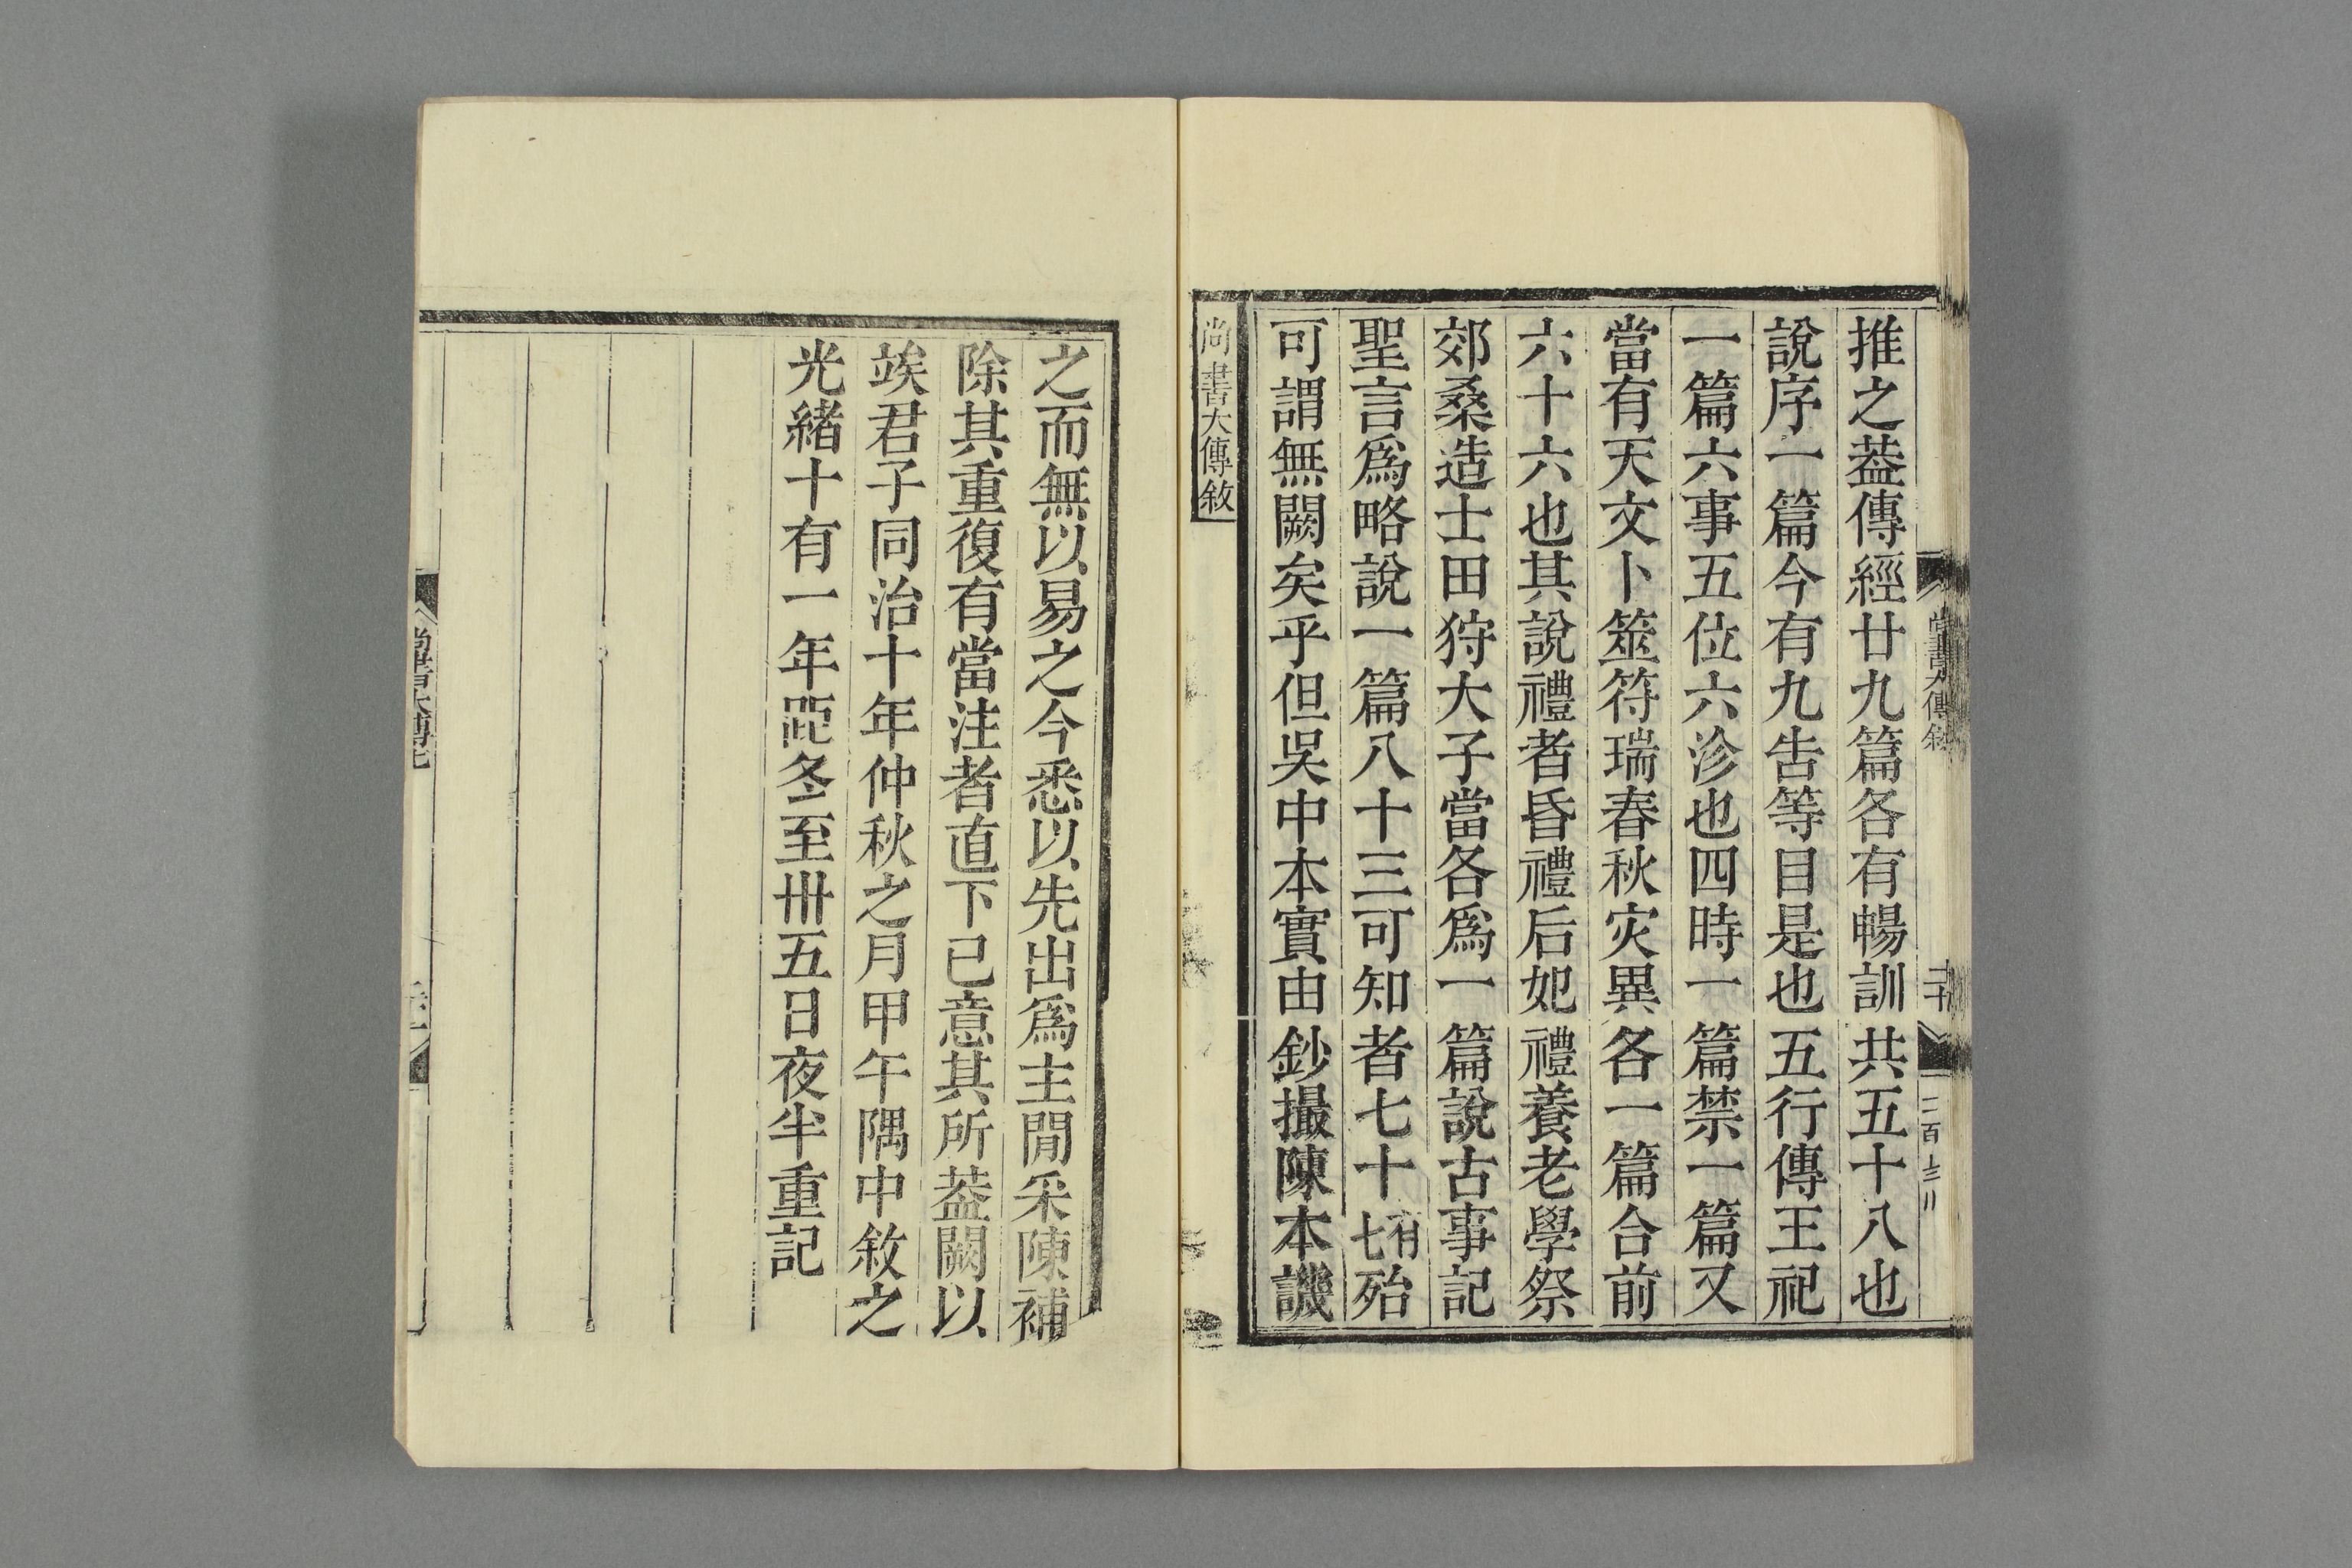 推之葢傳經廿九篇各有暢訓共五十八也
說序一篇今有九告等目是也五行傳王祀
一篇六事五位六沴也四時一篇禁一篇又
當有天文卜筮符瑞春秋灾異各一篇合前
六十六也其說禮者昏禮后妃禮養老學祭
郊桑造士田狩大子當各爲一篇說古事記
聖言爲略說一篇八十三可知者七十有七殆
可謂無闕矣乎但吳中本實由鈔撮陳本譏
尚書大傳敘
之而無以易之今悉以先出爲主閒采陳補
除其重復有當注者直下已意其所葢闕以
竢君子同治十年仲秋之月甲午隅中敘之
光緒十有一年歫冬至卅五日夜半重記
尚書大傳敘
二十
尚書大傳七